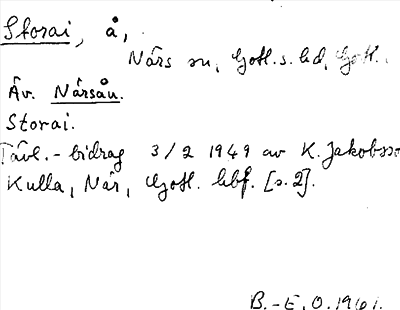 Storai, å,
Närs sn, Gotl. s. hd, Gotl.
Äv. Närsån.
Storai.
Tävl.-bidrag 3/2 1949 av K. Jakobsso
Kulla, När, Gotl. hbf. [s.2].
B.-E. O. 1961.